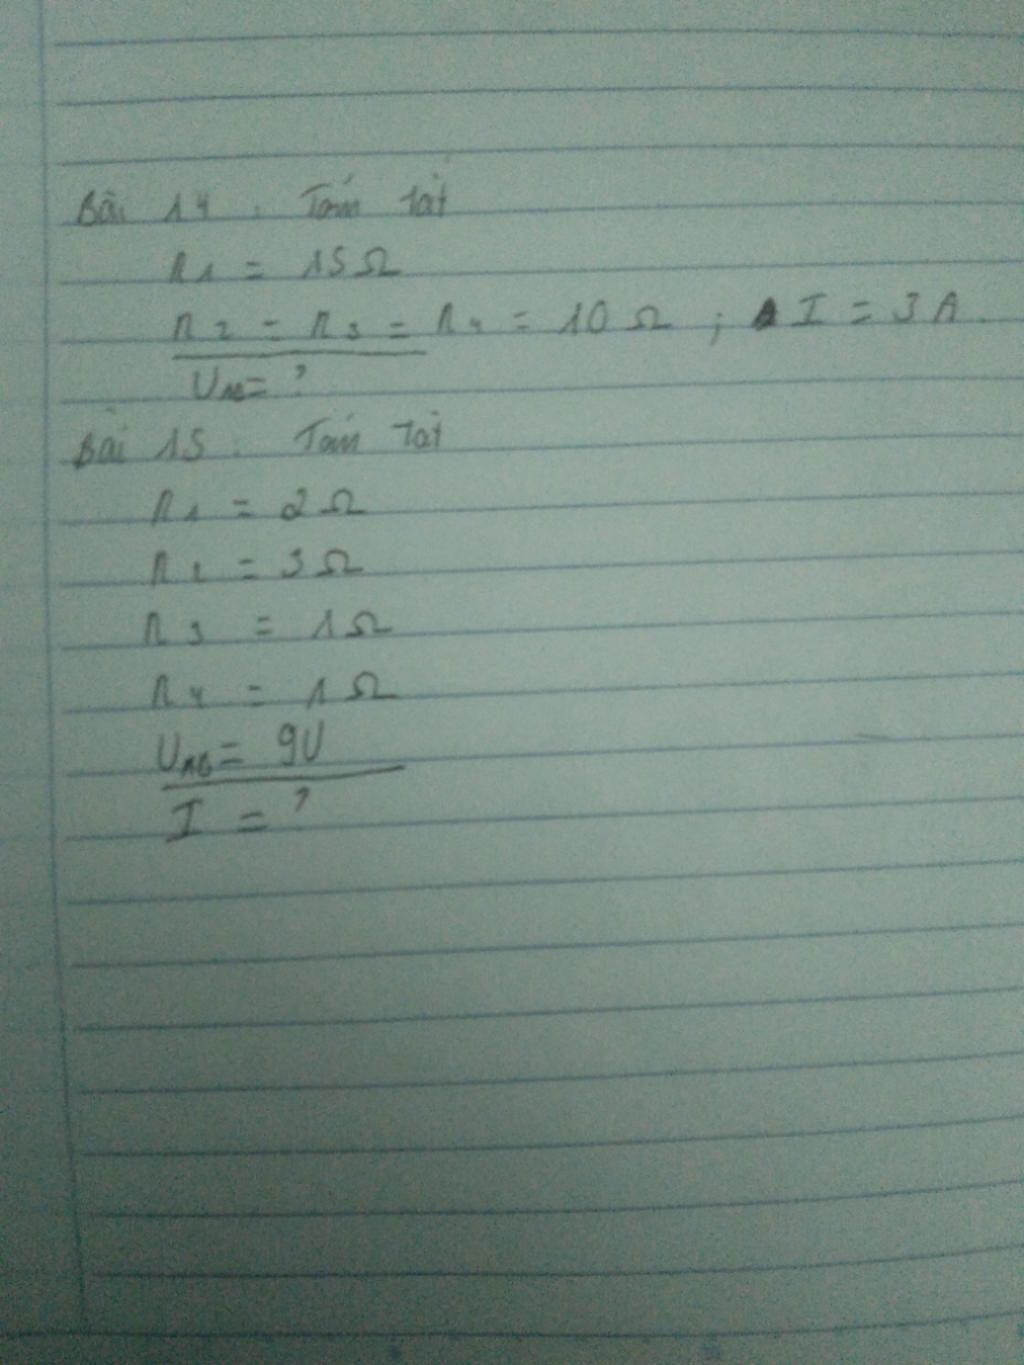 Bài 14. Tóm tắt
R1 = 15Ω
R2 = R3 = R4 = 10Ω ; I = 3A.
UAB = ?
Bài 15. Tóm tắt
R1 = 2Ω
R2 = 3Ω
R3 = 1Ω
R4 = 1Ω
UAB = 9V
I = ?